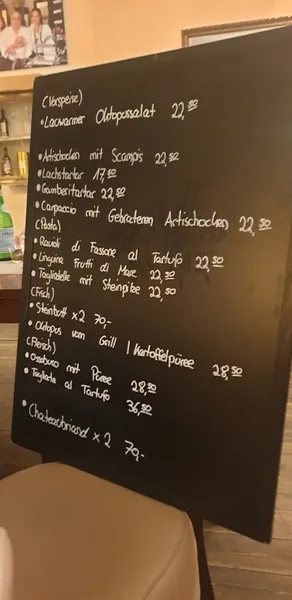 (Vorspeise)
• Lauwarmer Oktopussalat 22,50
• Artischocken mit Scampis 22,50
• Lachstartar 17,50
• Gamberitartar 22,50
• Carpaccio mit Gebratenen Artischocken 22,50
(Pasta)
• Ravioli di Fassone al Tartufo 22,50
• Linguine Frutti di Mare 22,50
• Tagliatelle mit Steinpilze 22,50
(Fisch)
• Steinbutt x2 70,-
• Oktopus vom Grill / Kartoffelpüree 28,50
(Fleisch)
• Ossobuco mit Püree 28,50
• Tagliata al Tartufo 36,50
• Chateaubriand x 2 70,-